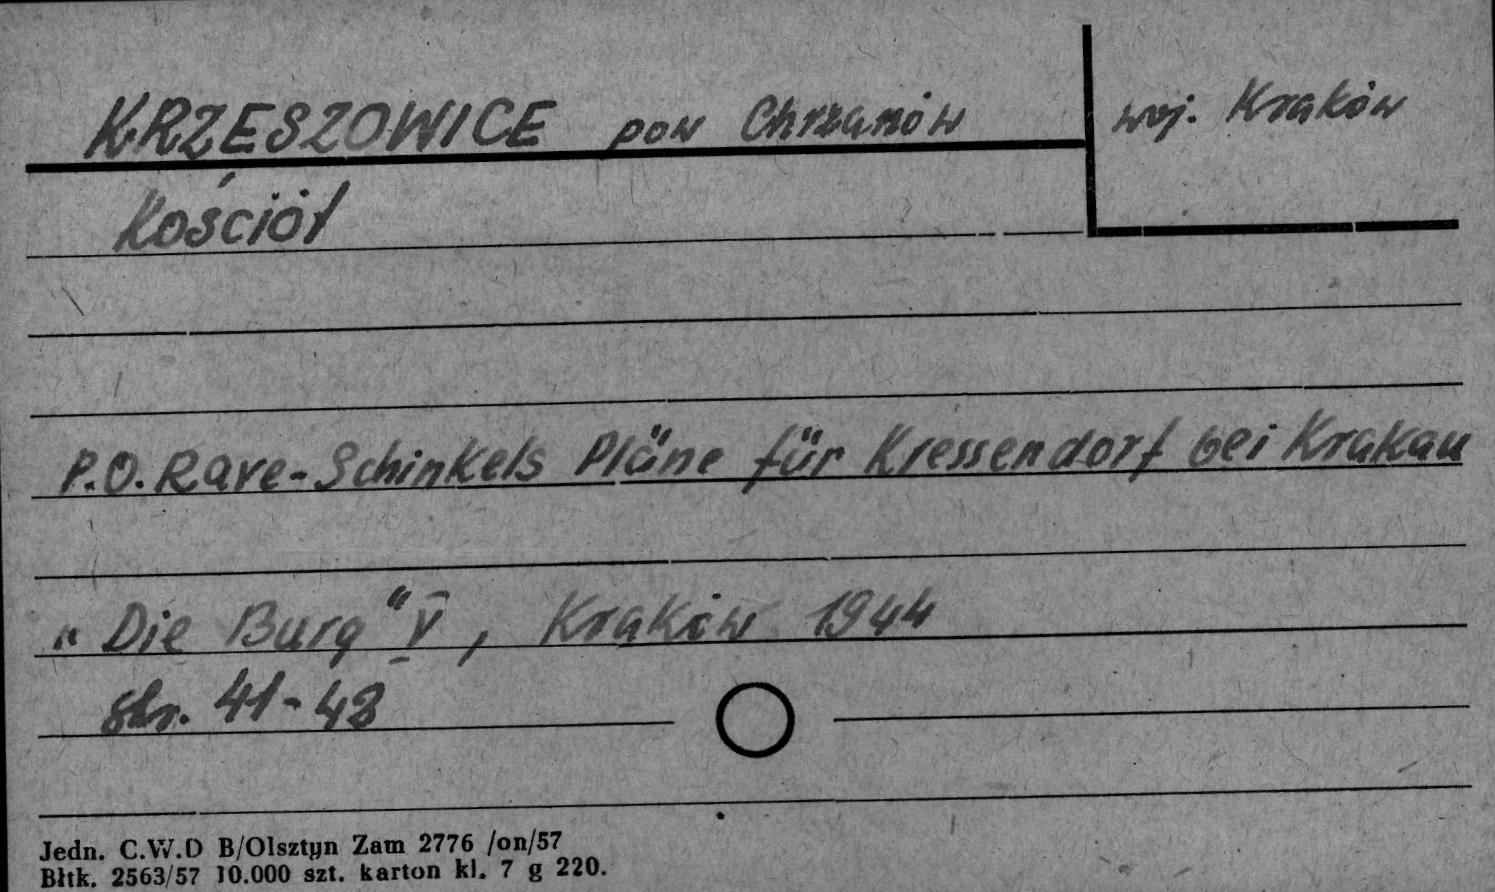 KRZESZOWICE pow Chrzanów woj. Kraków
Kościół
P.O. Rave - Schinkels Pläne für Kressendorf bei Krakau
„Die Burg" V, Kraków 1944
str. 41-48
Jedn. C.W.D B/Olsztyn Zam 2776 /on/57
Błtk. 2563/57 10.000 szt. karton kl. 7 g 220.